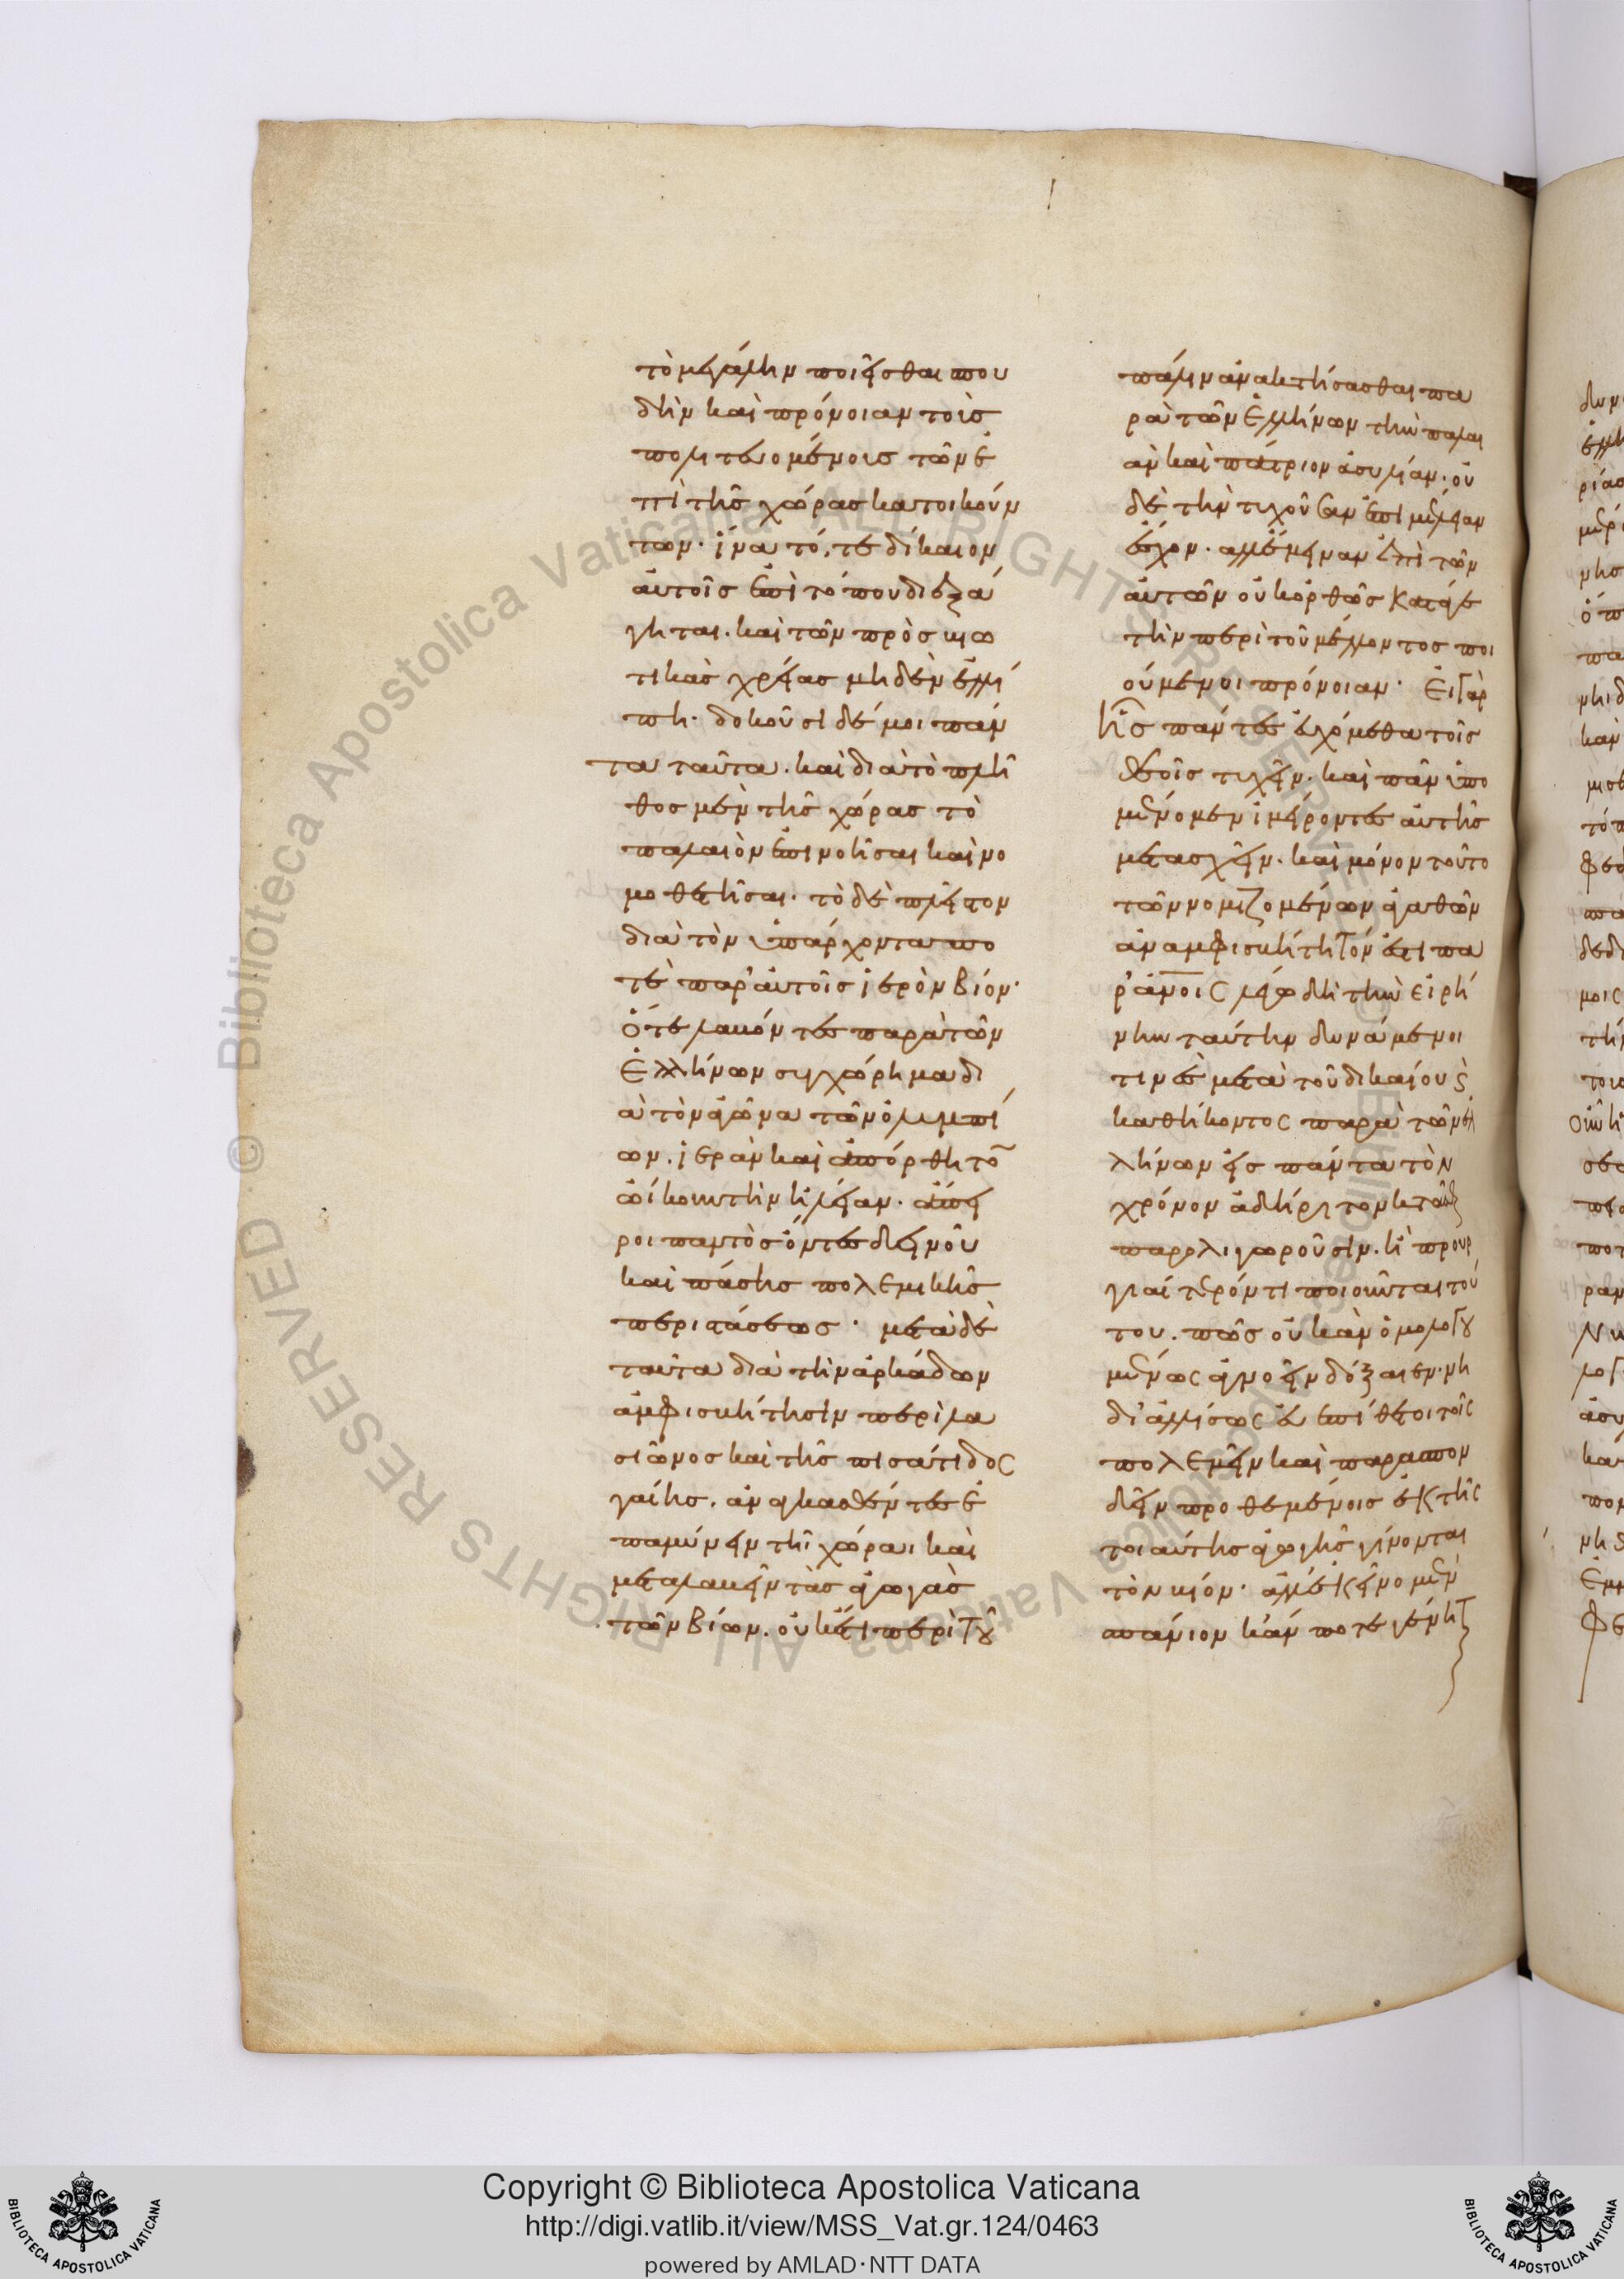 τὸ μεγάλην ποιεῖσθαι σπου
δὴν καὶ πρόνοιαν τοῖς
πολιτευομένοις τῶν ἐ
πὶ τῆς χώρας κατοικούν
των· ἵνα τό, τε δίκαιον
αὐτοῖς ἐπὶ τόπου διεξά
γηται. καὶ τῶν πρὸς βιω
τικὰς χρείας μηδὲν ἐλλεί
πη. δοκοῦσι δέ μοι πάν
τα ταῦτα. καὶ διὰ τὸ πλῆ
θος μὲν τῆς χώρας τὸ
παλαιὸν ἐπινοῆσαι καὶ νο
μοθετῆσαι. τὸ δὲ πλεῖστον
διὰ τὸν ὑπάρχοντα πο
τὲ παρ' αὐτοῖς ἱερὸν βίον.
ὅτε λαβόντες παρὰ τῶν
Ἑλλήνων συγχώρημα δι
ὰ τὸν ἀγῶνα τῶν ὀλυμπί
ων. ἱερὰν καὶ ἀπόρθητο̄
ὤικουν τὴν ἠλείαν. ἄπει
ροι παντὸς ὄντες δεινοῦ
καὶ πάσης πολεμικῆς
περιστάσεως. μετὰ δὲ
ταῦτα διὰ τὴν ἀρκάδων
ἀμφισβήτησιν περὶ λα
σιῶνος καὶ τῆς πισάτιδος
γαίης. ἀναγκασθέντες ἐ
παμύνειν τῆι χώραι καὶ
μεταλαβεῖν τὰς ἀγωγὰς
τῶν βίων. οὐκέτι περὶ τοῦ
πάλιν ἀνακτήσασθαι πα
ρὰ τῶν Ἑλλήνων τὴν παλαι
ὰν καὶ πάτριον ἀσυλίαν. οὐ
δὲ τὴν τυχοῦσαν ἐπιμέλειαν
ἔσχον. ἀλλ' ἔμειναν ἐπὶ τῶν
αὐτῶν οὐκ ὀρθῶς κατάγε
τὴν περὶ τοῦ μέλλοντος ποι
ούμενοι πρόνοιαν. εἰ γὰρ
ἧς πάντες εὐχόμεθα τοῖς
θεοῖς τυχεῖν. καὶ πᾶν ὑπο
μένομεν ἱμείροντες αὐτῆς
μετασχεῖν. καὶ μόνον τοῦτο
τῶν νομιζομένων ἀγαθῶν
ἀναμφισβήτητόν ἐστι πα
ρ' ἀν̅οις λέγω δὴ τὴν εἰρή
νην ταύτην δυνάμενοι
τινὲς μετὰ τοῦ δικαίου ϗ
καθήκοντος παρὰ τῶν ἑλ
λήνων εἰς πάντα τὸν
χρόνον ἀδήριτον κτᾶσθαι
παρολιγωροῦσιν. ἢ προυρ
γιαίτερόν τι ποιοῦνται τού
του. πῶς οὐκ ἂν ὁμολογου
μένως ἀγνοεῖν δόξαιεν. νὴ
δί' ἀλλ' ἴσως εὐεπίθετοι τοῖς
πολεμεῖν καὶ παρασπον
δεῖν προθεμένοις ἐκ τῆς
τοιαύτης ἀγωγῆς γίνονται
τὸν βίον. ἀλλ' ἐκεῖνο μὲν
σπάνιον κἄν ποτε γένητ